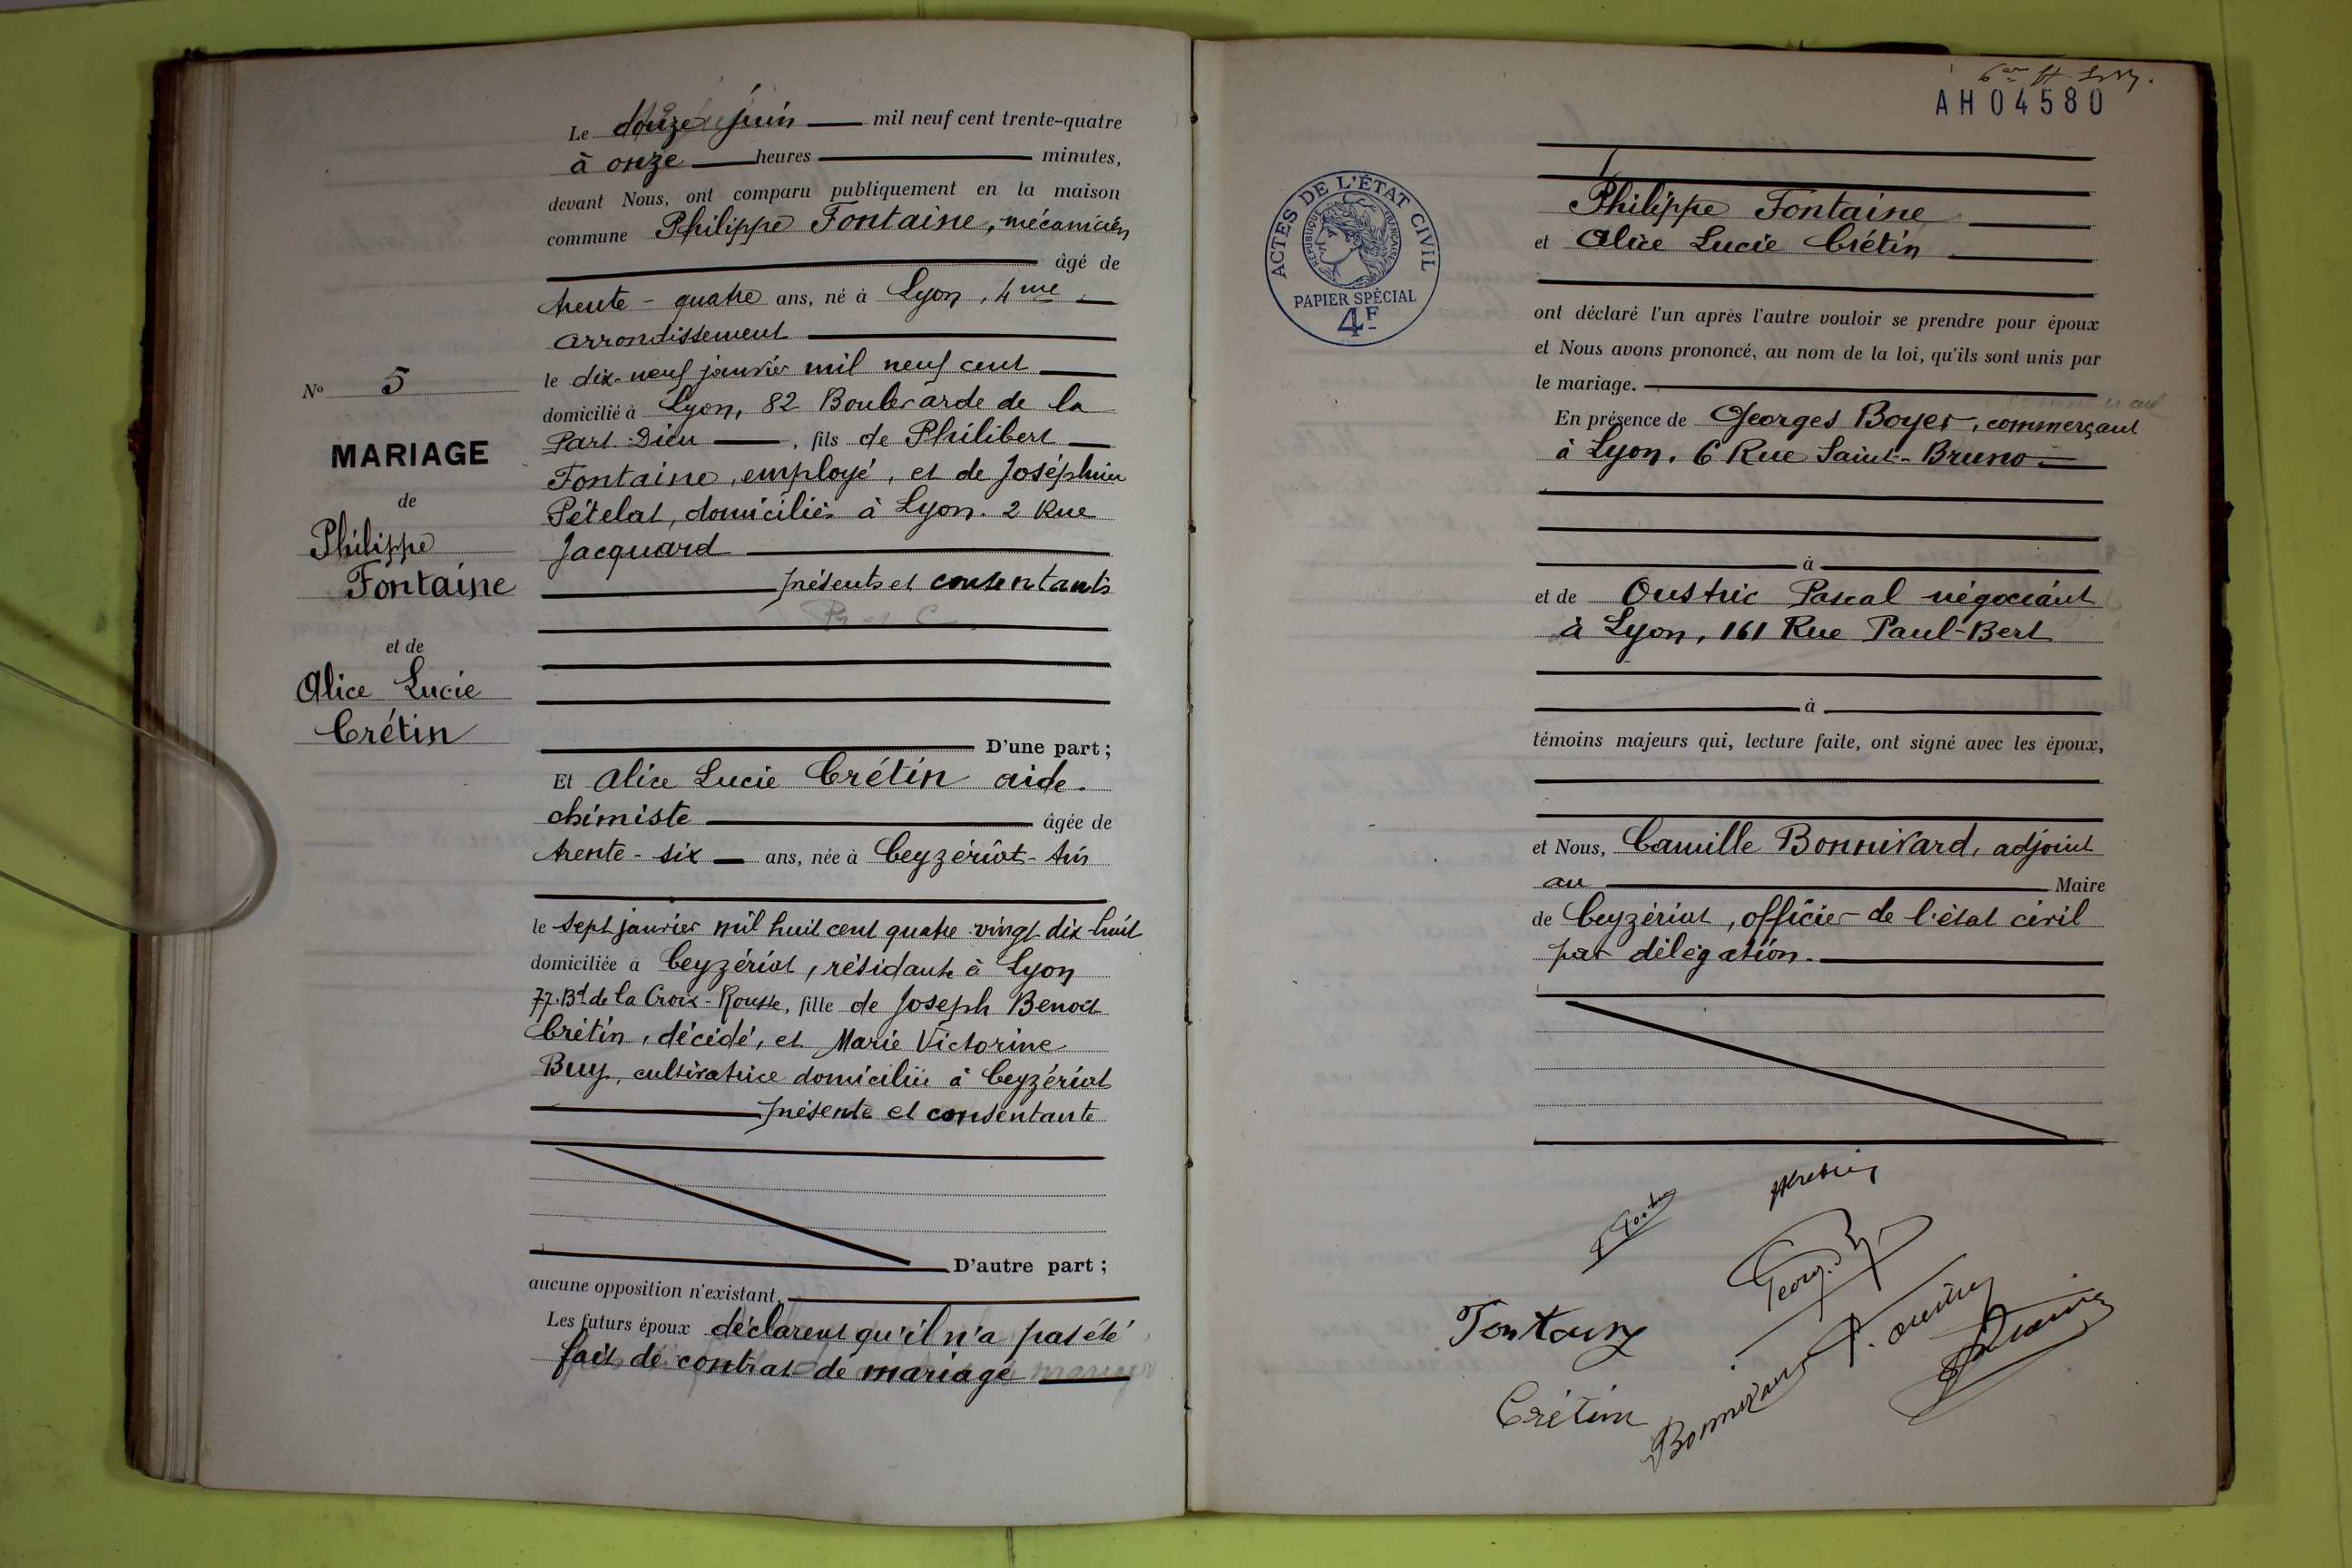 Le douze juin mil neuf cent trente-quatre
à onze heures minutes,
devant Nous, ont comparu publiquement en la maison
commune Philippe Fontaine, mécanicien
âgé de
trente-quatre ans, né à Lyon, 4me
arrondissement
le dix-neuf janvier mil neuf cent
domicilié à Lyon, 82 Boulevarde de la
Part-Dieu, fils de Philibert
Fontaine, employé, et de Joséphine
Pételat, domiciliés à Lyon. 2 Rue
Jacquard
présents et consentants
D'une part ;
Et Alice Lucie Crétin aide-
chimiste âgée de
trente-six ans, née à Ceyzériat-Ain
le sept janvier mil huit cent quatre-vingt dix-huit
domiciliée à Ceyzériat, résidante à Lyon
77. Bd de la Croix-Rousse, fille de Joseph Benoit
Crétin, décédé, et Marie Victorine
Buy, cultivatrice domiciliée à Ceyzériat
présente et consentante
D'autre part ;
aucune opposition n'existant.
Les futurs époux déclarent qu'il n'a pas été
fait de contrat de mariage
No 5
MARIAGE
de
Philippe
Fontaine
et de
Alice Lucie
Crétin
AH04580
ACTES DE L'ÉTAT CIVIL
RÉPUBLIQUE FRANÇAISE
PAPIER SPÉCIAL
4F
Philippe Fontaine
et Alice Lucie Crétin
ont déclaré l'un après l'autre vouloir se prendre pour époux
et Nous avons prononcé, au nom de la loi, qu'ils sont unis par
le mariage.
En présence de Georges Boyer, commerçant
à Lyon. 6 Rue Saint-Bruno
à
et de Oustric Pascal négociant
à Lyon, 161 Rue Paul-Bert
à
témoins majeurs qui, lecture faite, ont signé avec les époux,
et Nous, Camille Bonnivard, adjoint
au Maire
de Ceyzériat, officier de l'état civil
par délégation.
Crétin
Bonnivard